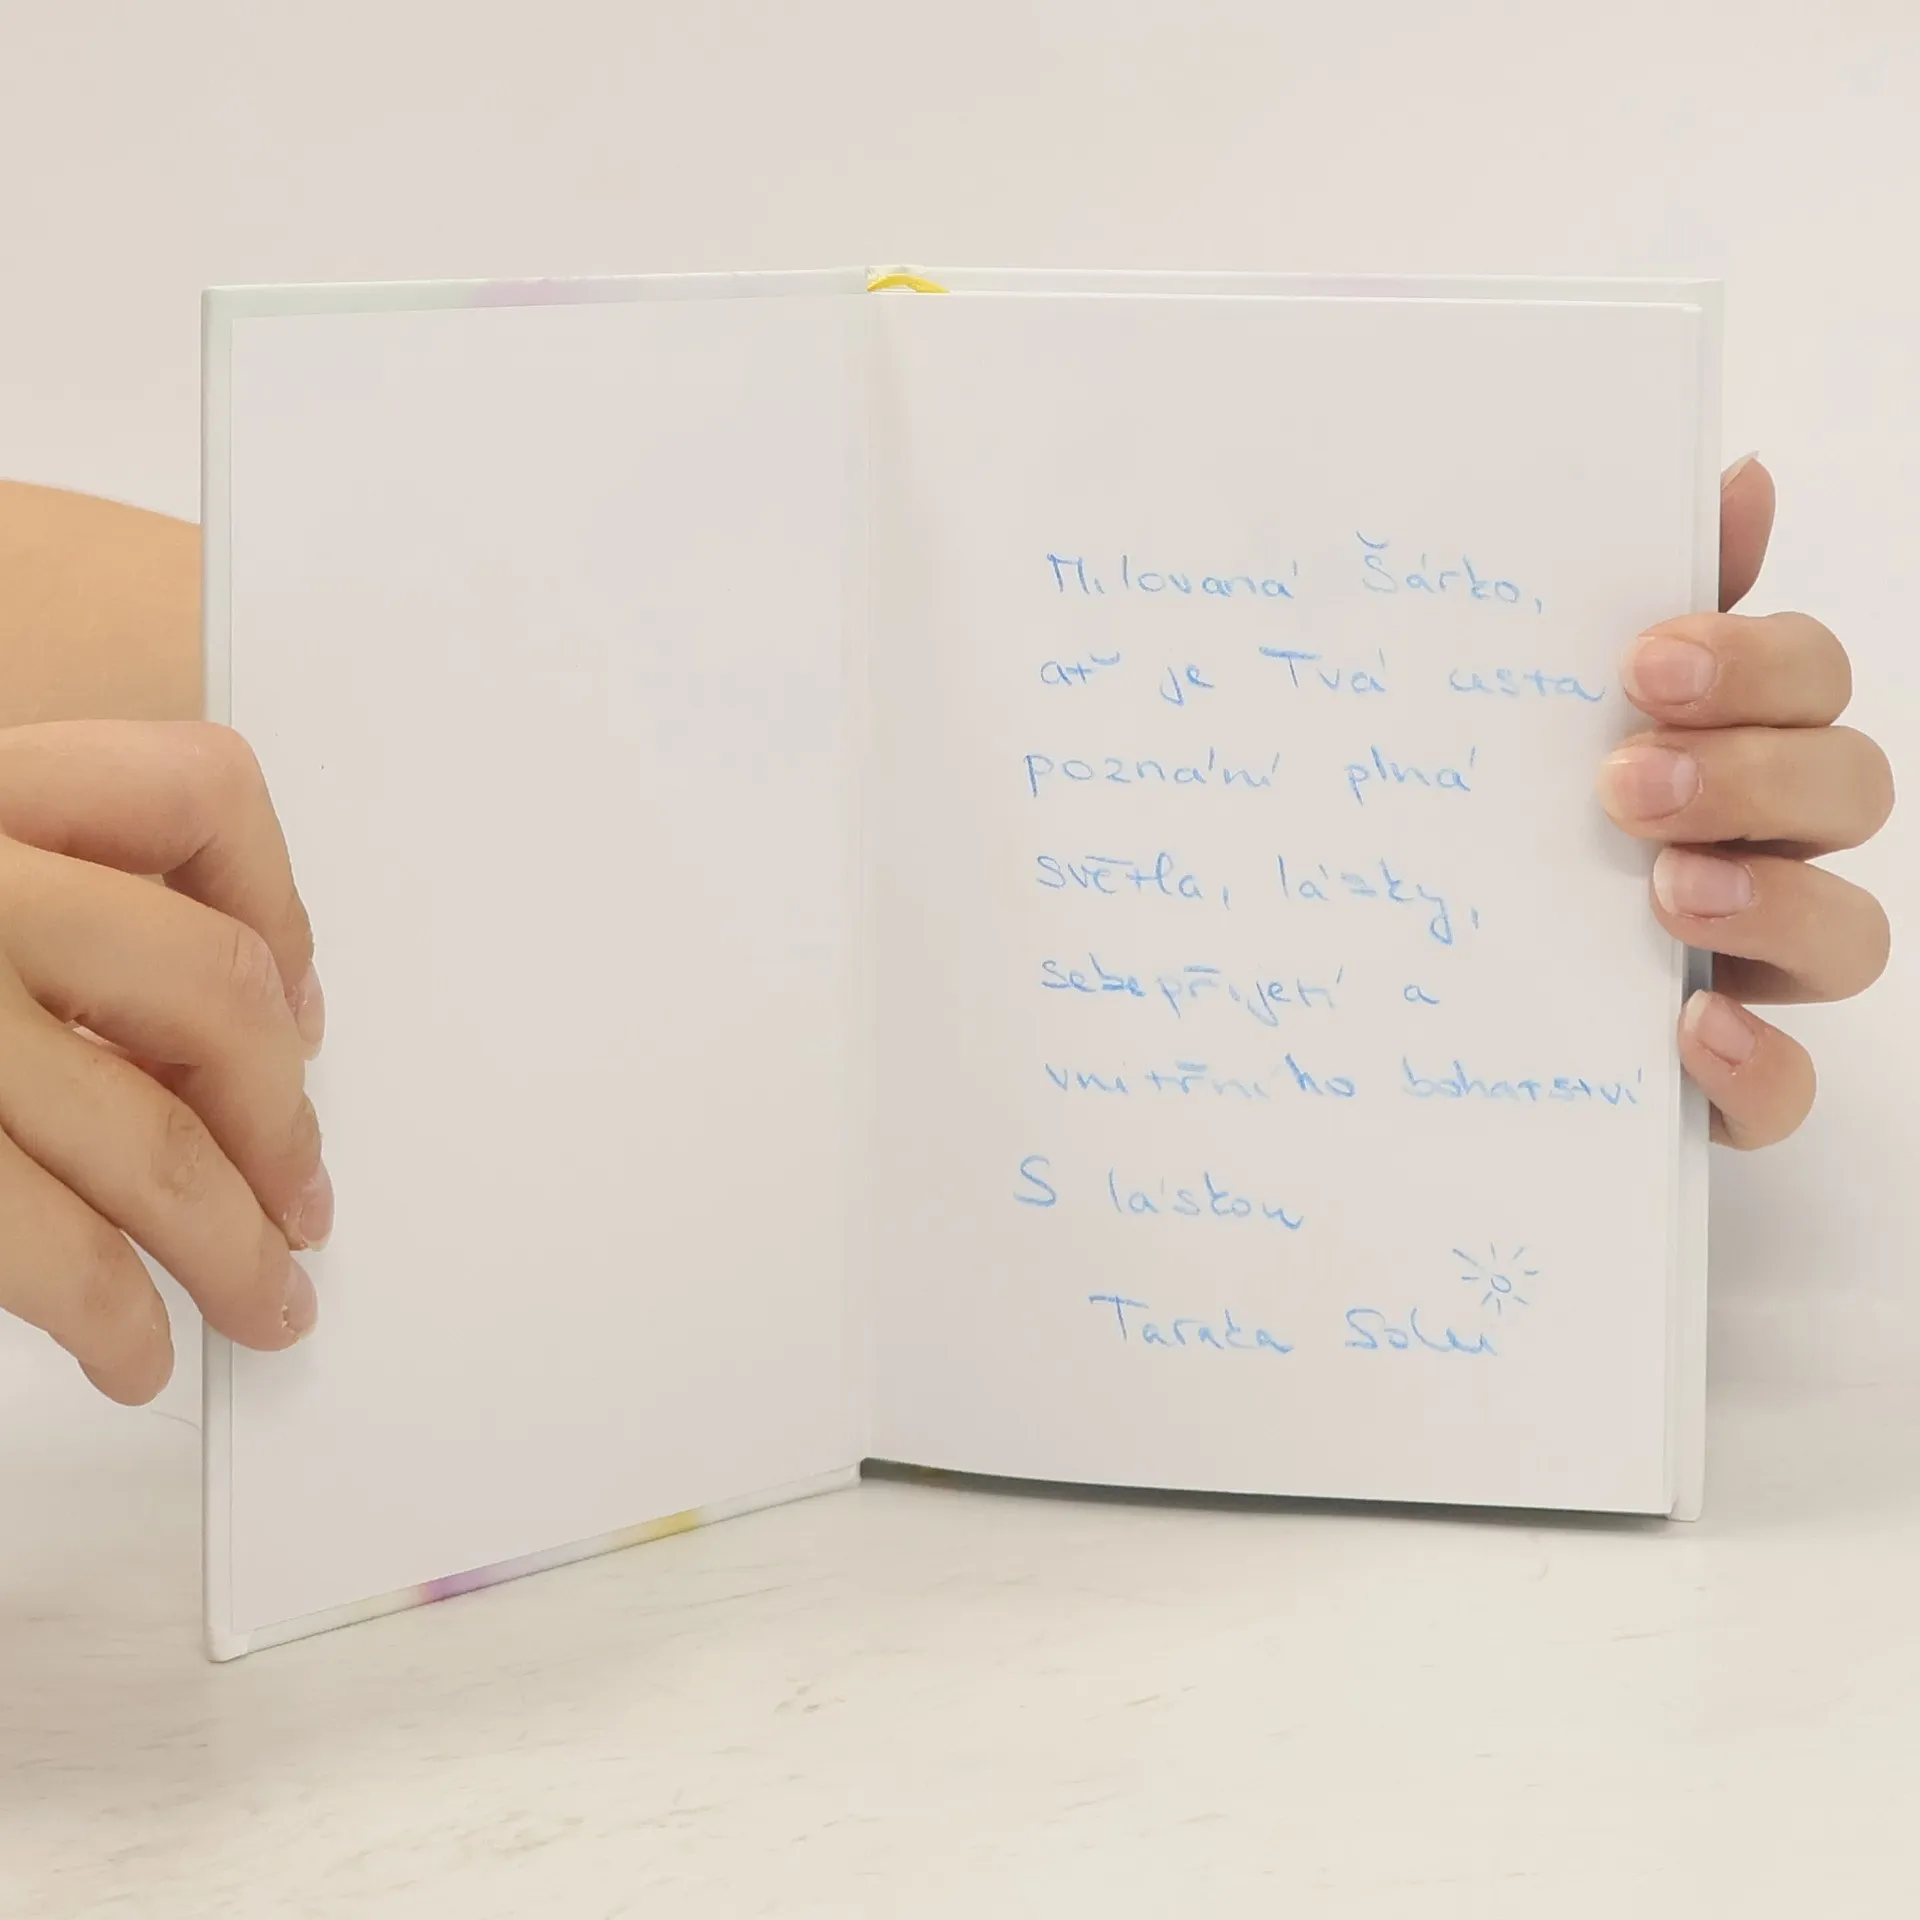 Milovaná Šárko,
ať je Tvá cesta
poznání plná
světla, lásky,
sebepřijetí a
vnitřního bohatství
S láskou